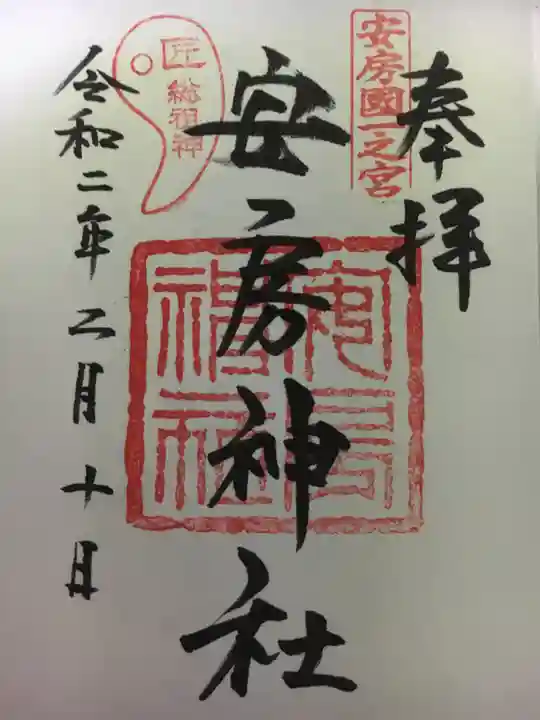 奉拝
安房國一之宮
安房神社
安房神社
匠 総祖神
令和二年二月十日